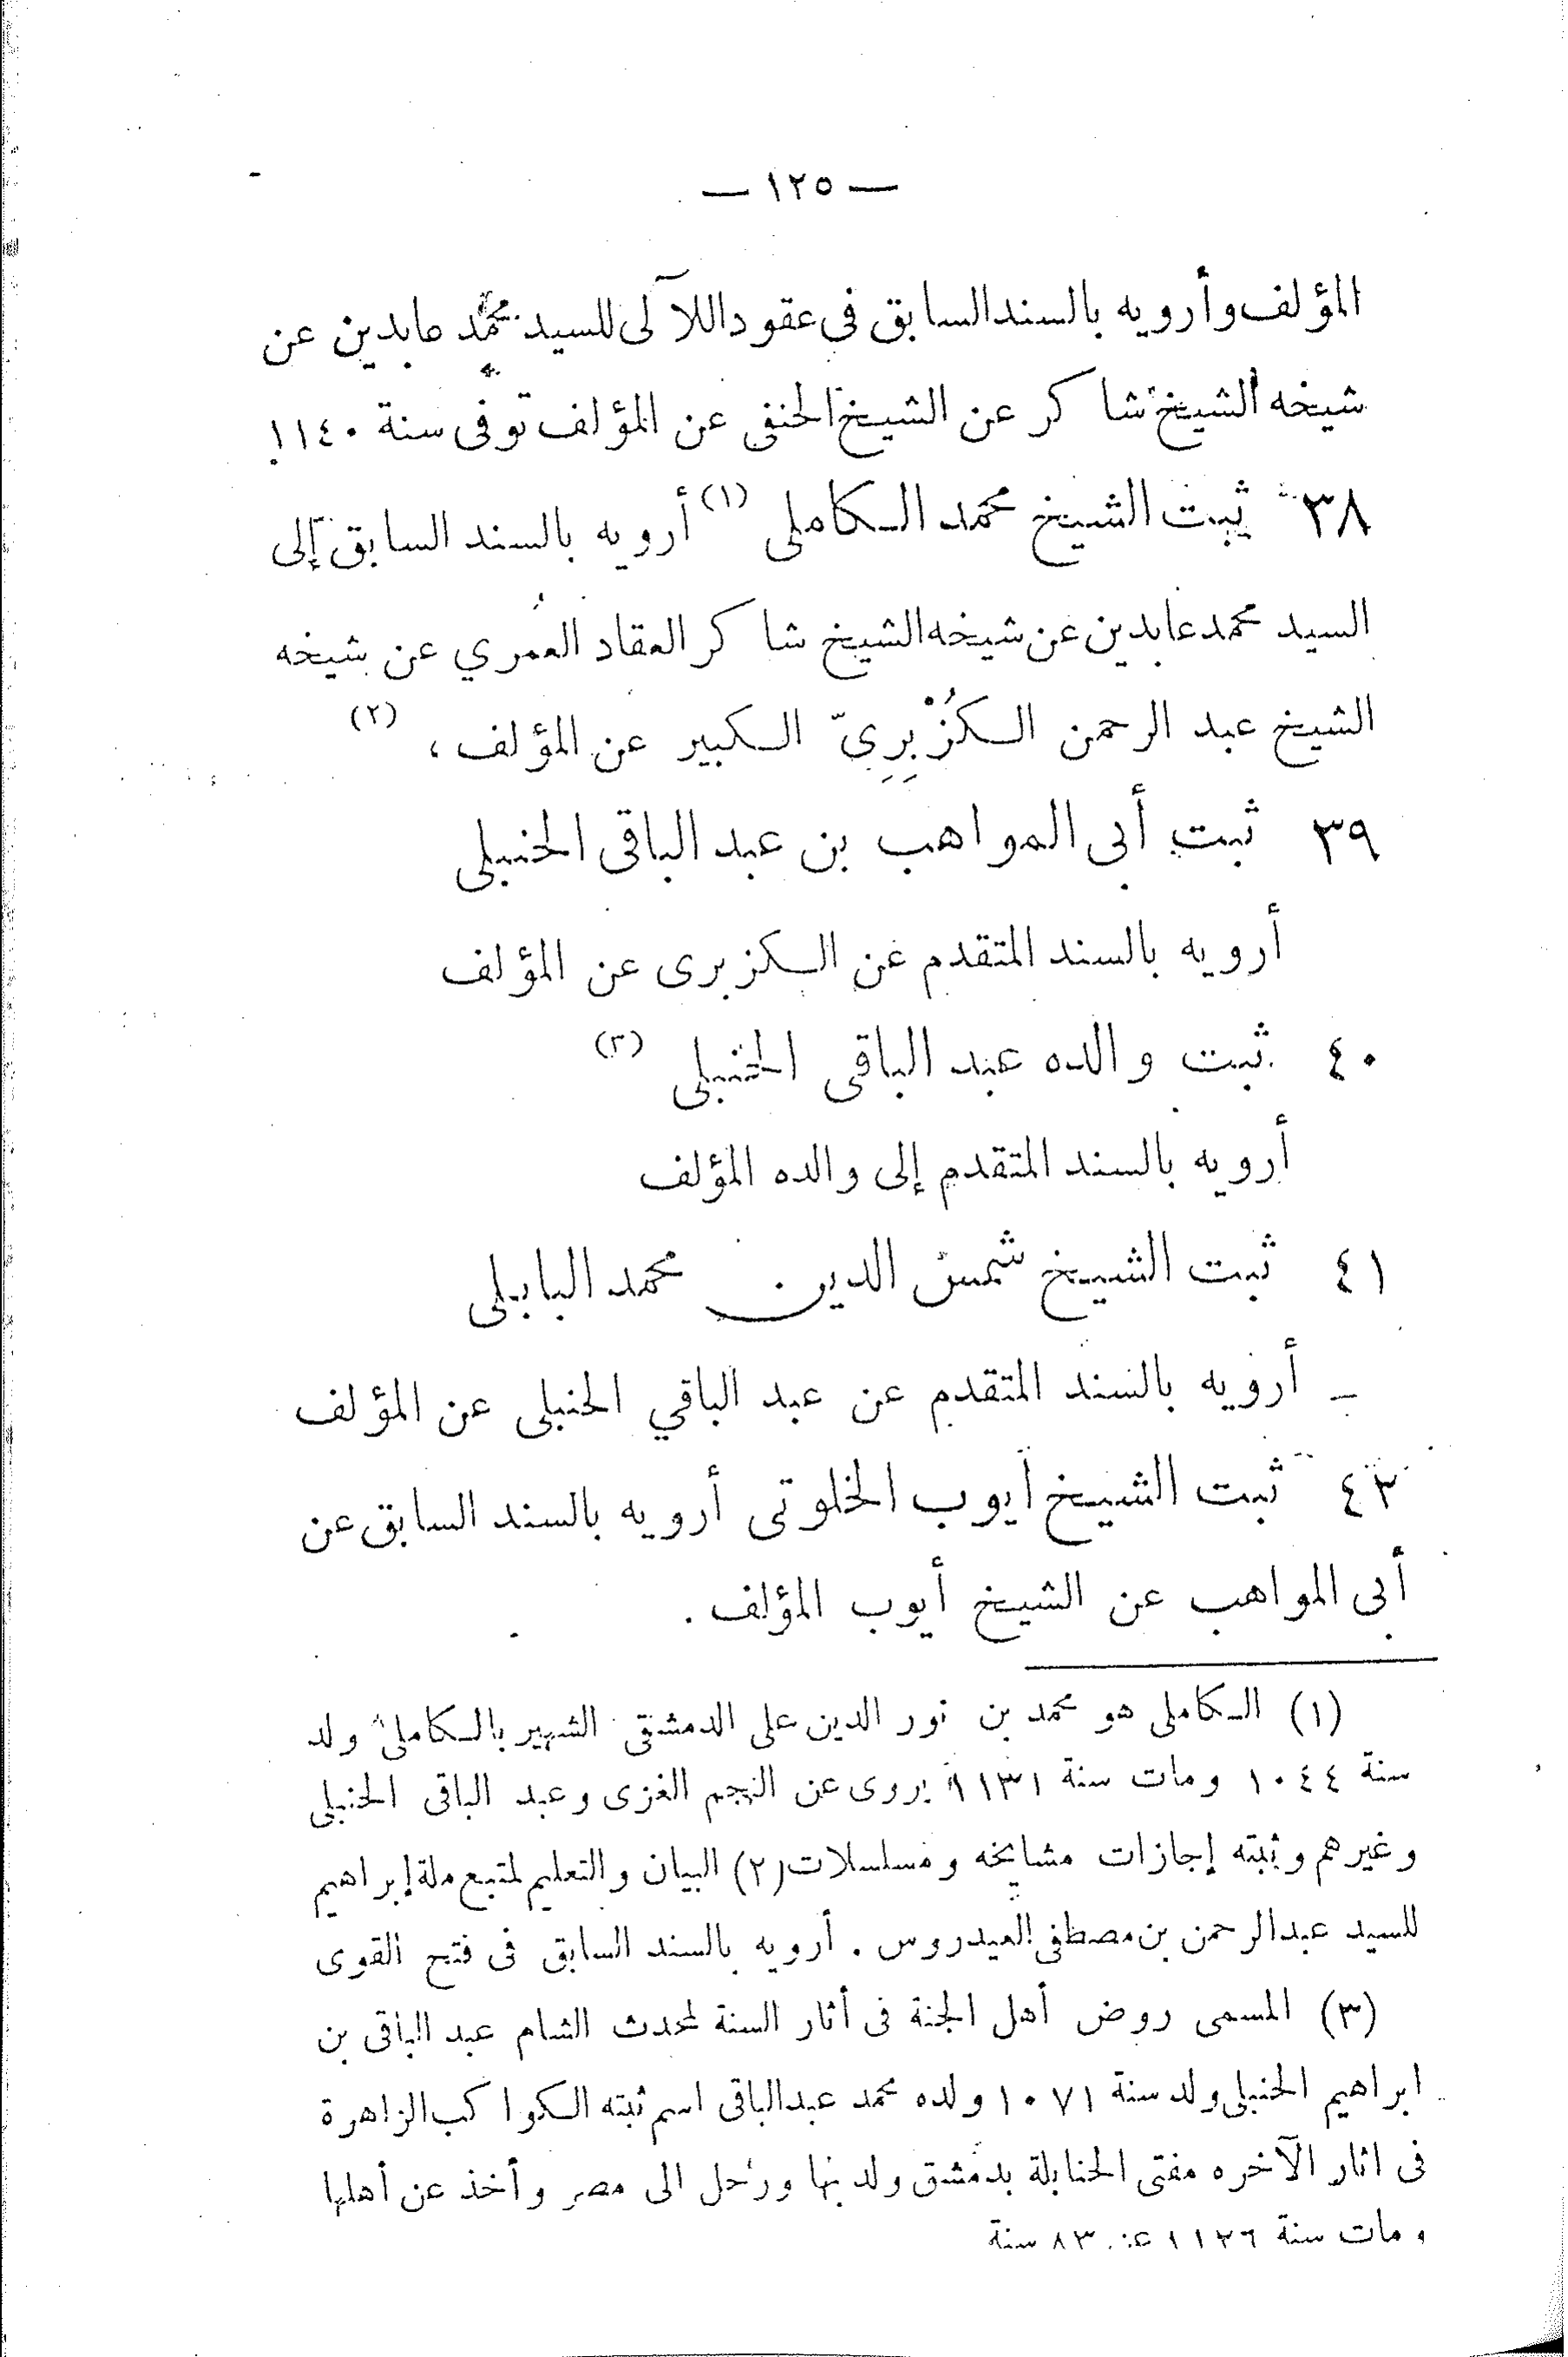 — ١٢٥ —
المؤلف وأرويه بالسند السابق فى عقود اللآلى للسيد محمد عابدين عن
شيخه الشيخ شاكر عن الشيخ الحنفى عن المؤلف توفى سنة ١١٤٠
٣٨ ثبت الشيخ محمد الكاملى (١) أرويه بالسند السابق إلى
السيد محمد عابدين عن شيخه الشيخ شاكر العقاد العُمري عن شيخه
الشيخ عبد الرحمن الكُزْبِرِىّ الكبير عن المؤلف ، (٢)
٣٩ ثبت أبى المواهب بن عبد الباقى الحنبلى
أرويه بالسند المتقدم عن الكزبرى عن المؤلف
٤٠ ثبت والده عبد الباقى الحنبلى (٣)
أرويه بالسند المتقدم إلى والده المؤلف
٤١ ثبت الشيخ شمس الدين محمد البابلى
ـ أرويه بالسند المتقدم عن عبد الباقي الحنبلى عن المؤلف
ثبت الشيخ أيوب الخلوتى أرويه بالسند السابق عن
أبى المواهب عن الشيخ أيوب المؤلف .
(١) الكاملى هو محمد بن نور الدين على الدمشقى الشهير بالكاملى ولد
سنة ١٠٤٤ ومات سنة ١١٣١ يروى عن النجم الغزى وعبد الباقى الحنبلى
وغيرهم وثبته إجازات مشايخه ومسلسلات (٢) البيان والتعليم لمتبع ملة إبراهيم
للسيد عبد الرحمن بن مصطفى العيدروس . أرويه بالسند السابق فى فتح القوى
(٣) المسمى روض أهل الجنة فى أثار السنة لمحدث الشام عبد الباقى بن
ابراهيم الحنبلى ولد سنة ١٠٧١ ولده محمد عبد الباقى اسم ثبته الكواكب الزاهرة
فى اثار الآخره مفتى الحنابلة بدمشق ولد بها ورحل الى مصر وأخذ عن أهلها
ومات سنة ١١٢٦ عن ٨٣ سنة